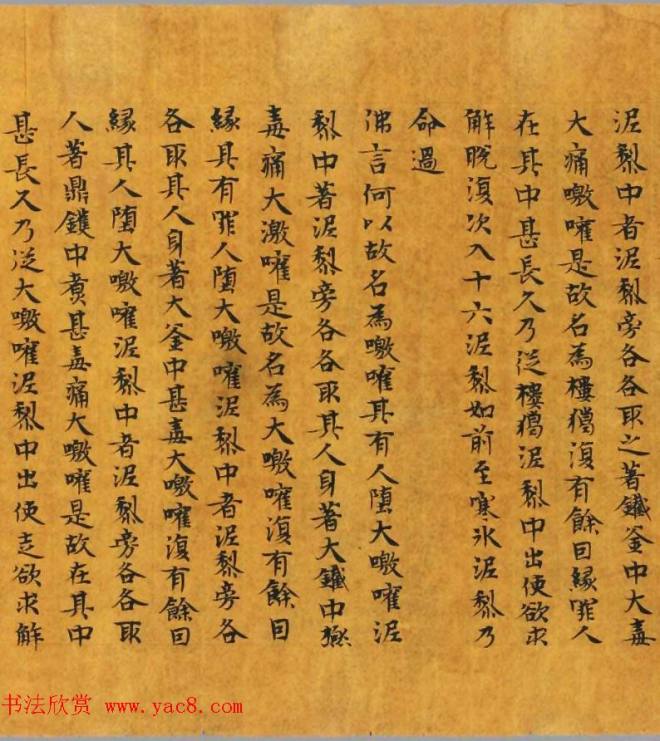 泥黎中者泥黎旁各各取之著鐵釜中大毒
大痛噭嚾是故名為樓獦復有餘因緣罪人
在其中甚長久乃從樓獦泥黎中出便欲求
解脫復次入十六泥黎如前至寒氷泥黎乃
命過
佛言何以故名為噭嚾其有人墮大噭嚾泥
黎中著泥黎旁各各取其人身著大鐵中㷶
毒痛大激嚾是故名為大噭嚾復有餘因
緣其有罪人墮大噭嚾泥黎中者泥黎旁各
各取其人身著大釜中甚毒大噭嚾復有餘因
緣其人墮大噭嚾泥黎中者泥黎旁各各取
人著鼎鑊中煑甚毒痛大噭嚾是故在其中
甚長久乃從大噭嚾泥黎中出便走欲求解
书法欣赏 www.yac8.com